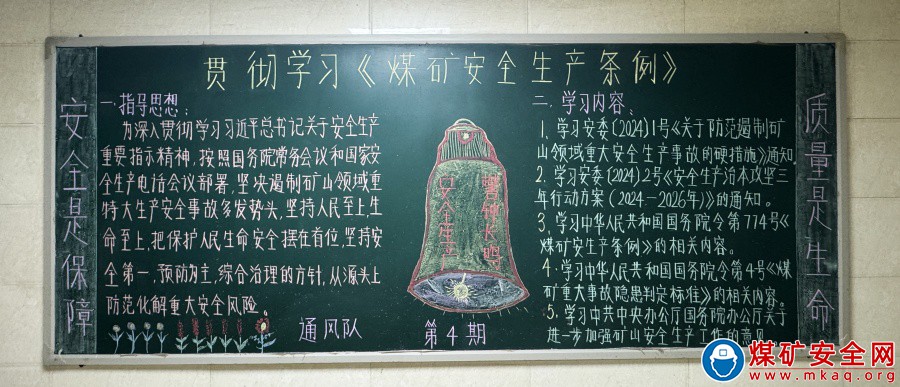 贯彻学习《煤矿安全生产条例》
安全是保障
一、指导思想：
为深入贯彻学习习近平总书记关于安全生产
重要指示精神，按照国务院常务会议和国家安
全生产电话会议部署，坚央遏制矿山领域重
特大生产安全事故多发势头，坚持人民至上，生
命至上，把保护人民生命安全摆在首位，坚持安
全第一，预防为主，综合治理的方针，从源头上
防范化解重大安全风险。
通风队
警钟长鸣
安全生产
第4期
二、学习内容：
1、学习安委(2024)1号《关于防范遏制矿
山领域重大安全生产事故的硬措施》通知。
2、学习安委(2024)2号《安全生产治本攻坚三
年行动方案(2024.—2026年)》的通知。
3、学习中华人民共和国国务院令第774号《
煤矿安生产条例》的相关内容。
4、学习中华人民共和国国务院令第4号《煤
矿重大事故隐患判定标准》的相关内容。
5、学习中共中央办公厅国务院办公厅关于
进一步加强矿山安全生产工作的意见
质量是生命
煤矿安全网
www.mkaq.org